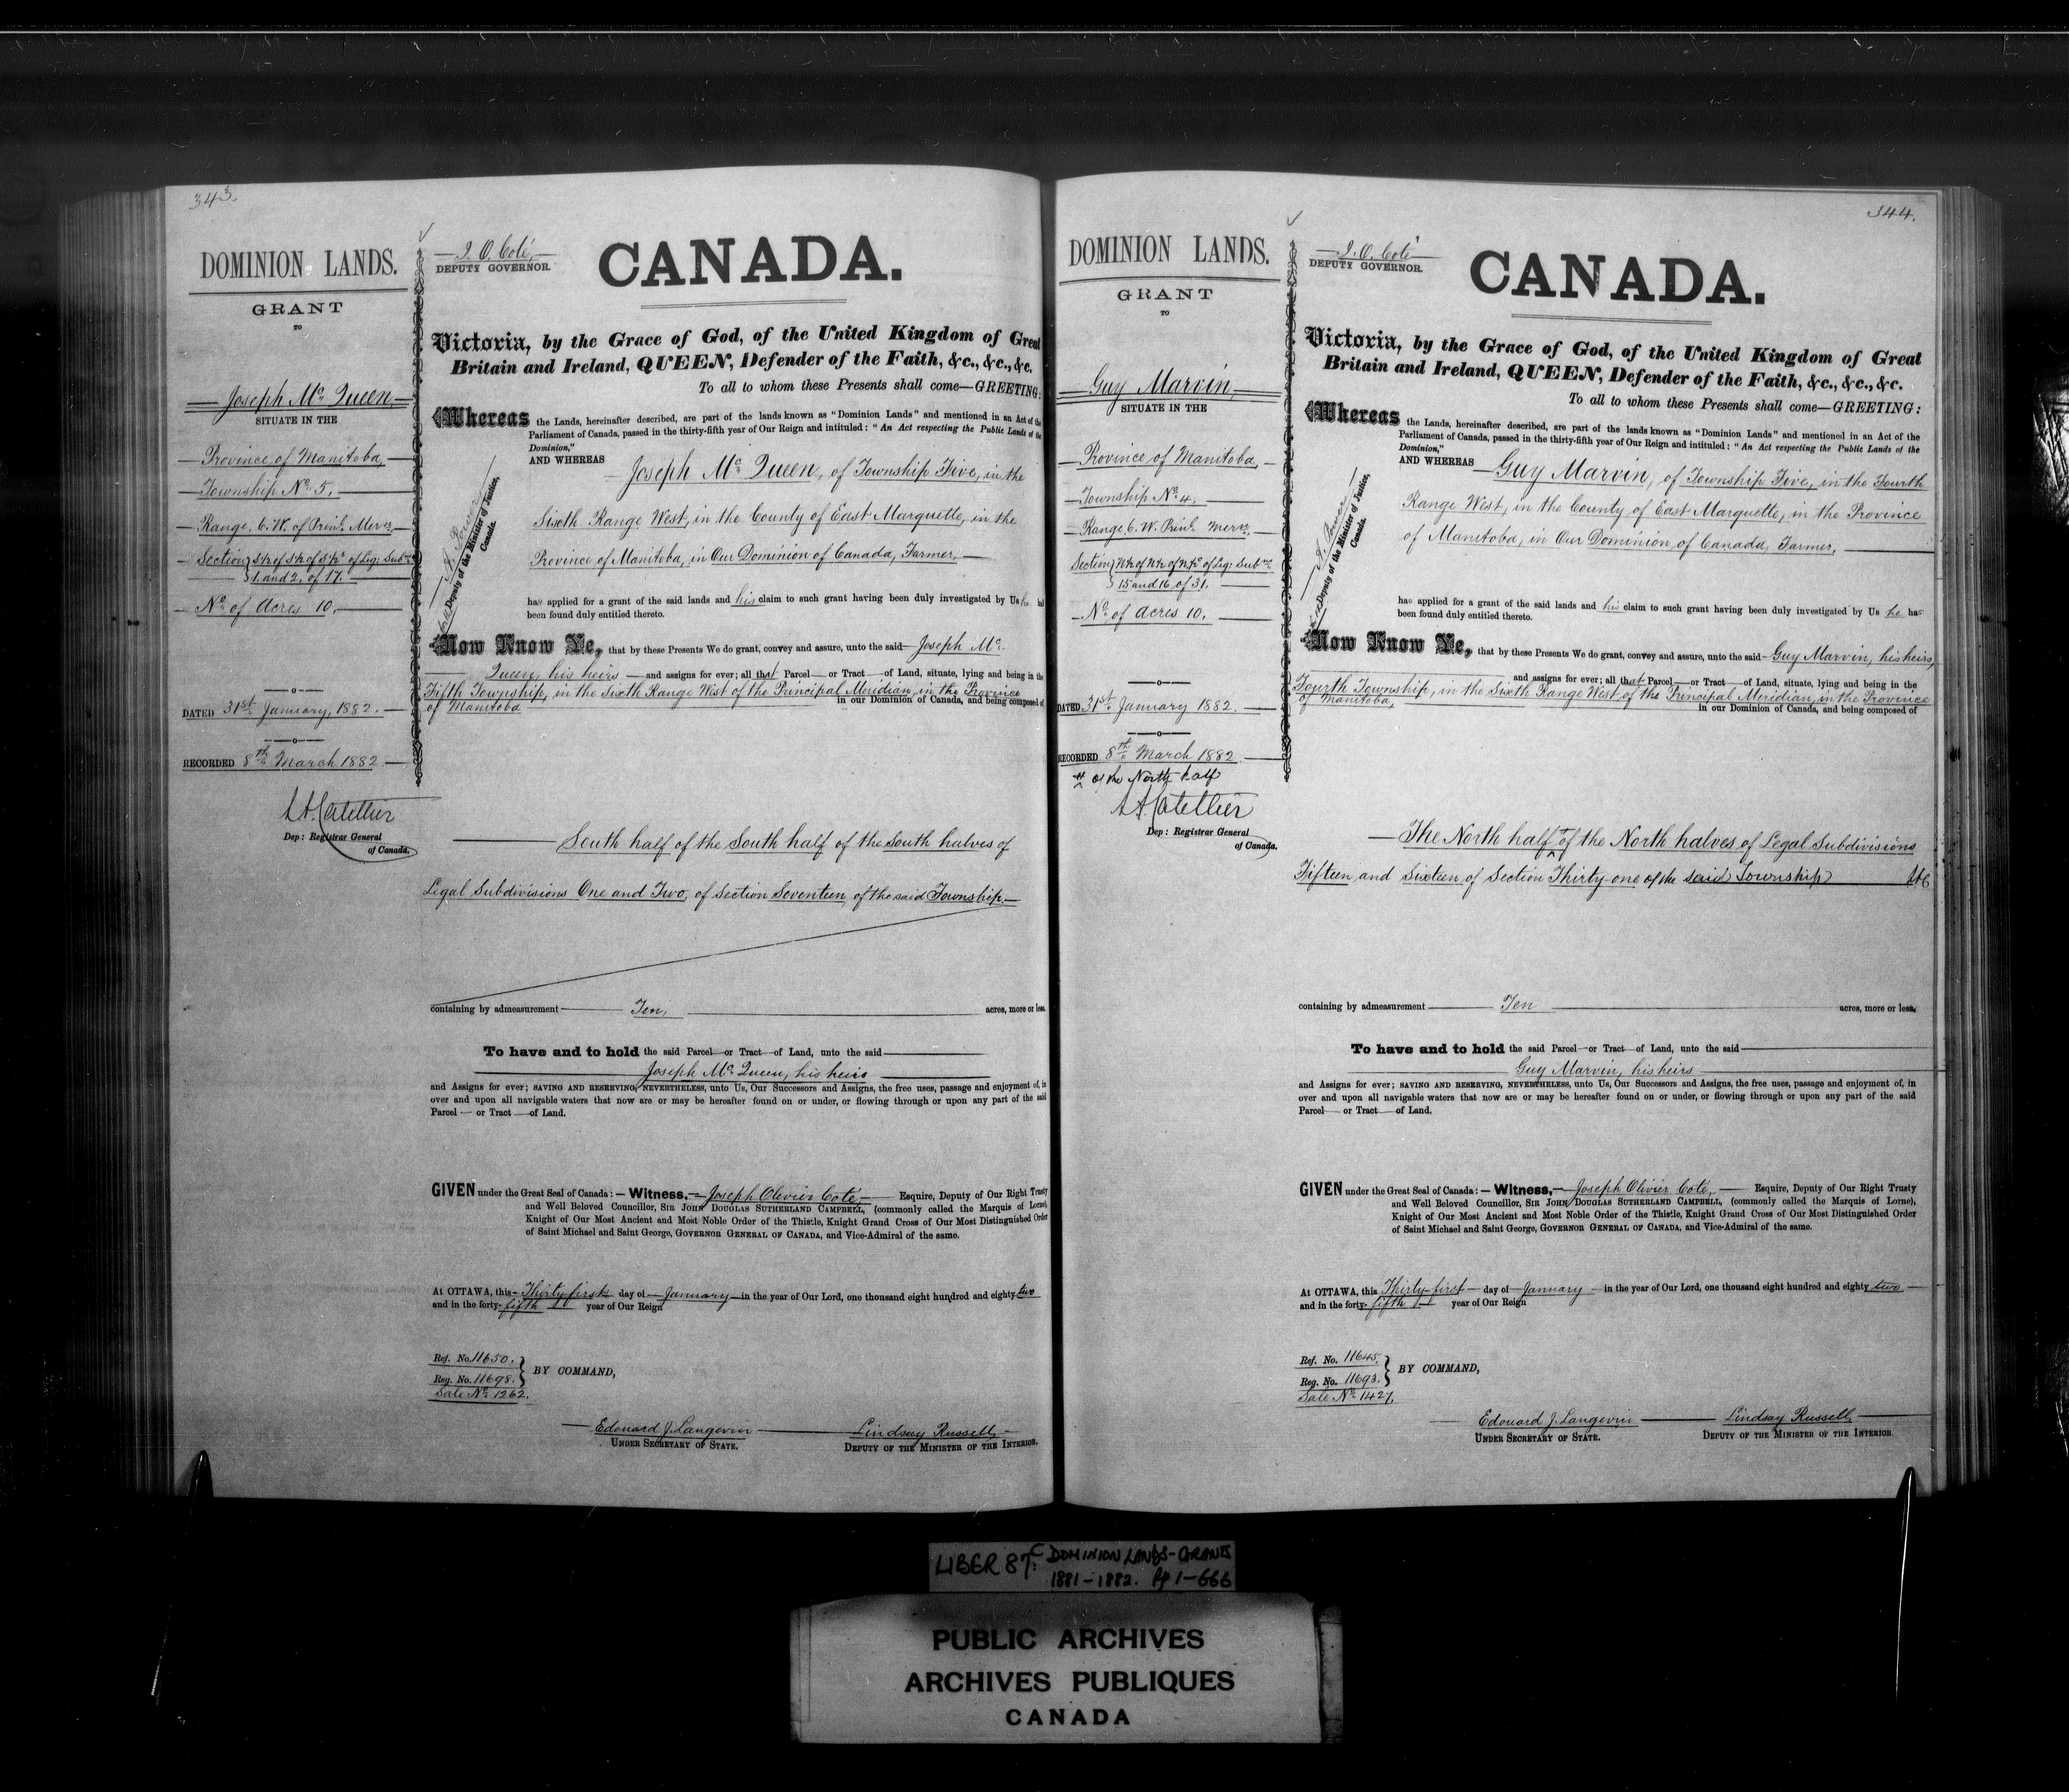 343.
DOMINION LANDS.
GRANT
TO
Joseph Mc Queen,
SITUATE IN THE
Province of Manitoba,
Township No. 5.
Range, 6. W. of Prinl. Mern.
Section S½ of S½ of S½s of Leg: Subns.
1. and 2, of 17.
No. of Acres 10.
DATED 31st January, 1882.
RECORDED 8th March 1882
Dep: Registrar General
of Canada.
J. O. Coté,
DEPUTY GOVERNOR.
CANADA.
Victoria, by the Grace of God, of the United Kingdom of Great
Britain and Ireland, QUEEN, Defender of the Faith, &c., &c., &c.
To all to whom these Presents shall come—GREETING:
Whereas the Lands, hereinafter described, are part of the lands known as "Dominion Lands" and mentioned in an Act of the
Parliament of Canada, passed in the thirty-fifth year of Our Reign and intituled: "An Act respecting the Public Lands of the
Dominion,"
AND WHEREAS Joseph Mc Queen, of Township Five, in the
Sixth Range West, in the County of East Marquette, in the
Province of Manitoba, in Our Dominion of Canada, Farmer,
Deputy of the Minister of Justice,
Canada.
has applied for a grant of the said lands and his claim to such grant having been duly investigated by Us he has
been found duly entitled thereto.
Now Know Ye, that by these Presents We do grant, convey and assure, unto the said Joseph Mc
Queen, his heirs and assigns for ever; all that Parcel or Tract of Land, situate, lying and being in the
Fifth Township, in the Sixth Range West of the Principal Meridian, in the Province
of Manitoba in our Dominion of Canada, and being composed of
South half of the South half of the South halves of
Legal Subdivisions One and Two, of Section Seventeen, of the said Township.
containing by admeasurement Ten, acres, more or less.
To have and to hold the said Parcel or Tract of Land, unto the said
Joseph Mc Queen, his heirs
and Assigns for ever; SAVING AND RESERVING, NEVERTHELESS, unto Us, Our Successors and Assigns, the free uses, passage and enjoyment of, in
over and upon all navigable waters that now are or may be hereafter found on or under, or flowing through or upon any part of the said
Parcel or Tract of Land.
GIVEN under the Great Seal of Canada:—Witness, Joseph Olivier Coté Esquire, Deputy of Our Right Trusty
and Well Beloved Councillor, SIR JOHN DOUGLAS SUTHERLAND CAMPBELL, (commonly called the Marquis of Lorne),
Knight of Our Most Ancient and Most Noble Order of the Thistle, Knight Grand Cross of Our Most Distinguished Order
of Saint Michael and Saint George, GOVERNOR GENERAL OF CANADA, and Vice-Admiral of the same.
At OTTAWA, this Thirty-first day of January in the year of Our Lord, one thousand eight hundred and eighty two
and in the forty-fifth year of Our Reign
Ref. No. 11650.
Reg. No. 11698.
Sale No. 1262.
BY COMMAND,
Edouard J. Langevin
UNDER SECRETARY OF STATE.
Lindsay Russell,
DEPUTY OF THE MINISTER OF THE INTERIOR.
344.
DOMINION LANDS.
GRANT
TO
Guy Marvin,
SITUATE IN THE
Province of Manitoba,
Township No. 4.
Range, 6. W. Prinl. Mern.
Section N½ of N½ of N½s of Leg: Subns.
15 and 16 of 31.
No. of Acres 10.
DATED 31st January 1882.
RECORDED 8th March 1882
of the North half
Dep: Registrar General
of Canada.
J. O. Coté
DEPUTY GOVERNOR.
CANADA.
Victoria, by the Grace of God, of the United Kingdom of Great
Britain and Ireland, QUEEN, Defender of the Faith, &c., &c., &c.
To all to whom these Presents shall come—GREETING:
Whereas the Lands, hereinafter described, are part of the lands known as "Dominion Lands" and mentioned in an Act of the
Parliament of Canada, passed in the thirty-fifth year of Our Reign and intituled: "An Act respecting the Public Lands of the
Dominion,"
AND WHEREAS Guy Marvin, of Township Five, in the Fourth
Range West, in the County of East Marquette, in the Province
of Manitoba, in Our Dominion of Canada, Farmer,
Deputy of the Minister of Justice,
Canada.
has applied for a grant of the said lands and his claim to such grant having been duly investigated by Us he has
been found duly entitled thereto.
Now Know Ye, that by these Presents We do grant, convey and assure, unto the said Guy Marvin, his heirs,
and assigns for ever; all that Parcel or Tract of Land, situate, lying and being in the
Fourth Township, in the Sixth Range West of the Principal Meridian, in the Province
of Manitoba, in our Dominion of Canada, and being composed of
The North half of the North halves of Legal Subdivisions
Fifteen and Sixteen of Section Thirty-one of the said Township
containing by admeasurement Ten acres, more or less.
To have and to hold the said Parcel or Tract of Land, unto the said
Guy Marvin, his heirs
and Assigns for ever; SAVING AND RESERVING, NEVERTHELESS, unto Us, Our Successors and Assigns, the free uses, passage and enjoyment of, in
over and upon all navigable waters that now are or may be hereafter found on or under, or flowing through or upon any part of the said
Parcel or Tract of Land.
GIVEN under the Great Seal of Canada:—Witness, Joseph Olivier Coté, Esquire, Deputy of Our Right Trusty
and Well Beloved Councillor, SIR JOHN DOUGLAS SUTHERLAND CAMPBELL, (commonly called the Marquis of Lorne),
Knight of Our Most Ancient and Most Noble Order of the Thistle, Knight Grand Cross of Our Most Distinguished Order
of Saint Michael and Saint George, GOVERNOR GENERAL OF CANADA, and Vice-Admiral of the same.
At OTTAWA, this Thirty-first day of January in the year of Our Lord, one thousand eight hundred and eighty two
and in the forty-fifth year of Our Reign
Ref. No. 11645.
Reg. No. 11693.
Sale No. 1427.
BY COMMAND,
Edouard J. Langevin
UNDER SECRETARY OF STATE.
Lindsay Russell,
DEPUTY OF THE MINISTER OF THE INTERIOR
LIBER 87C: DOMINION LANDS-GRANTS
1881-1882. Pp 1-666
PUBLIC ARCHIVES
ARCHIVES PUBLIQUES
CANADA